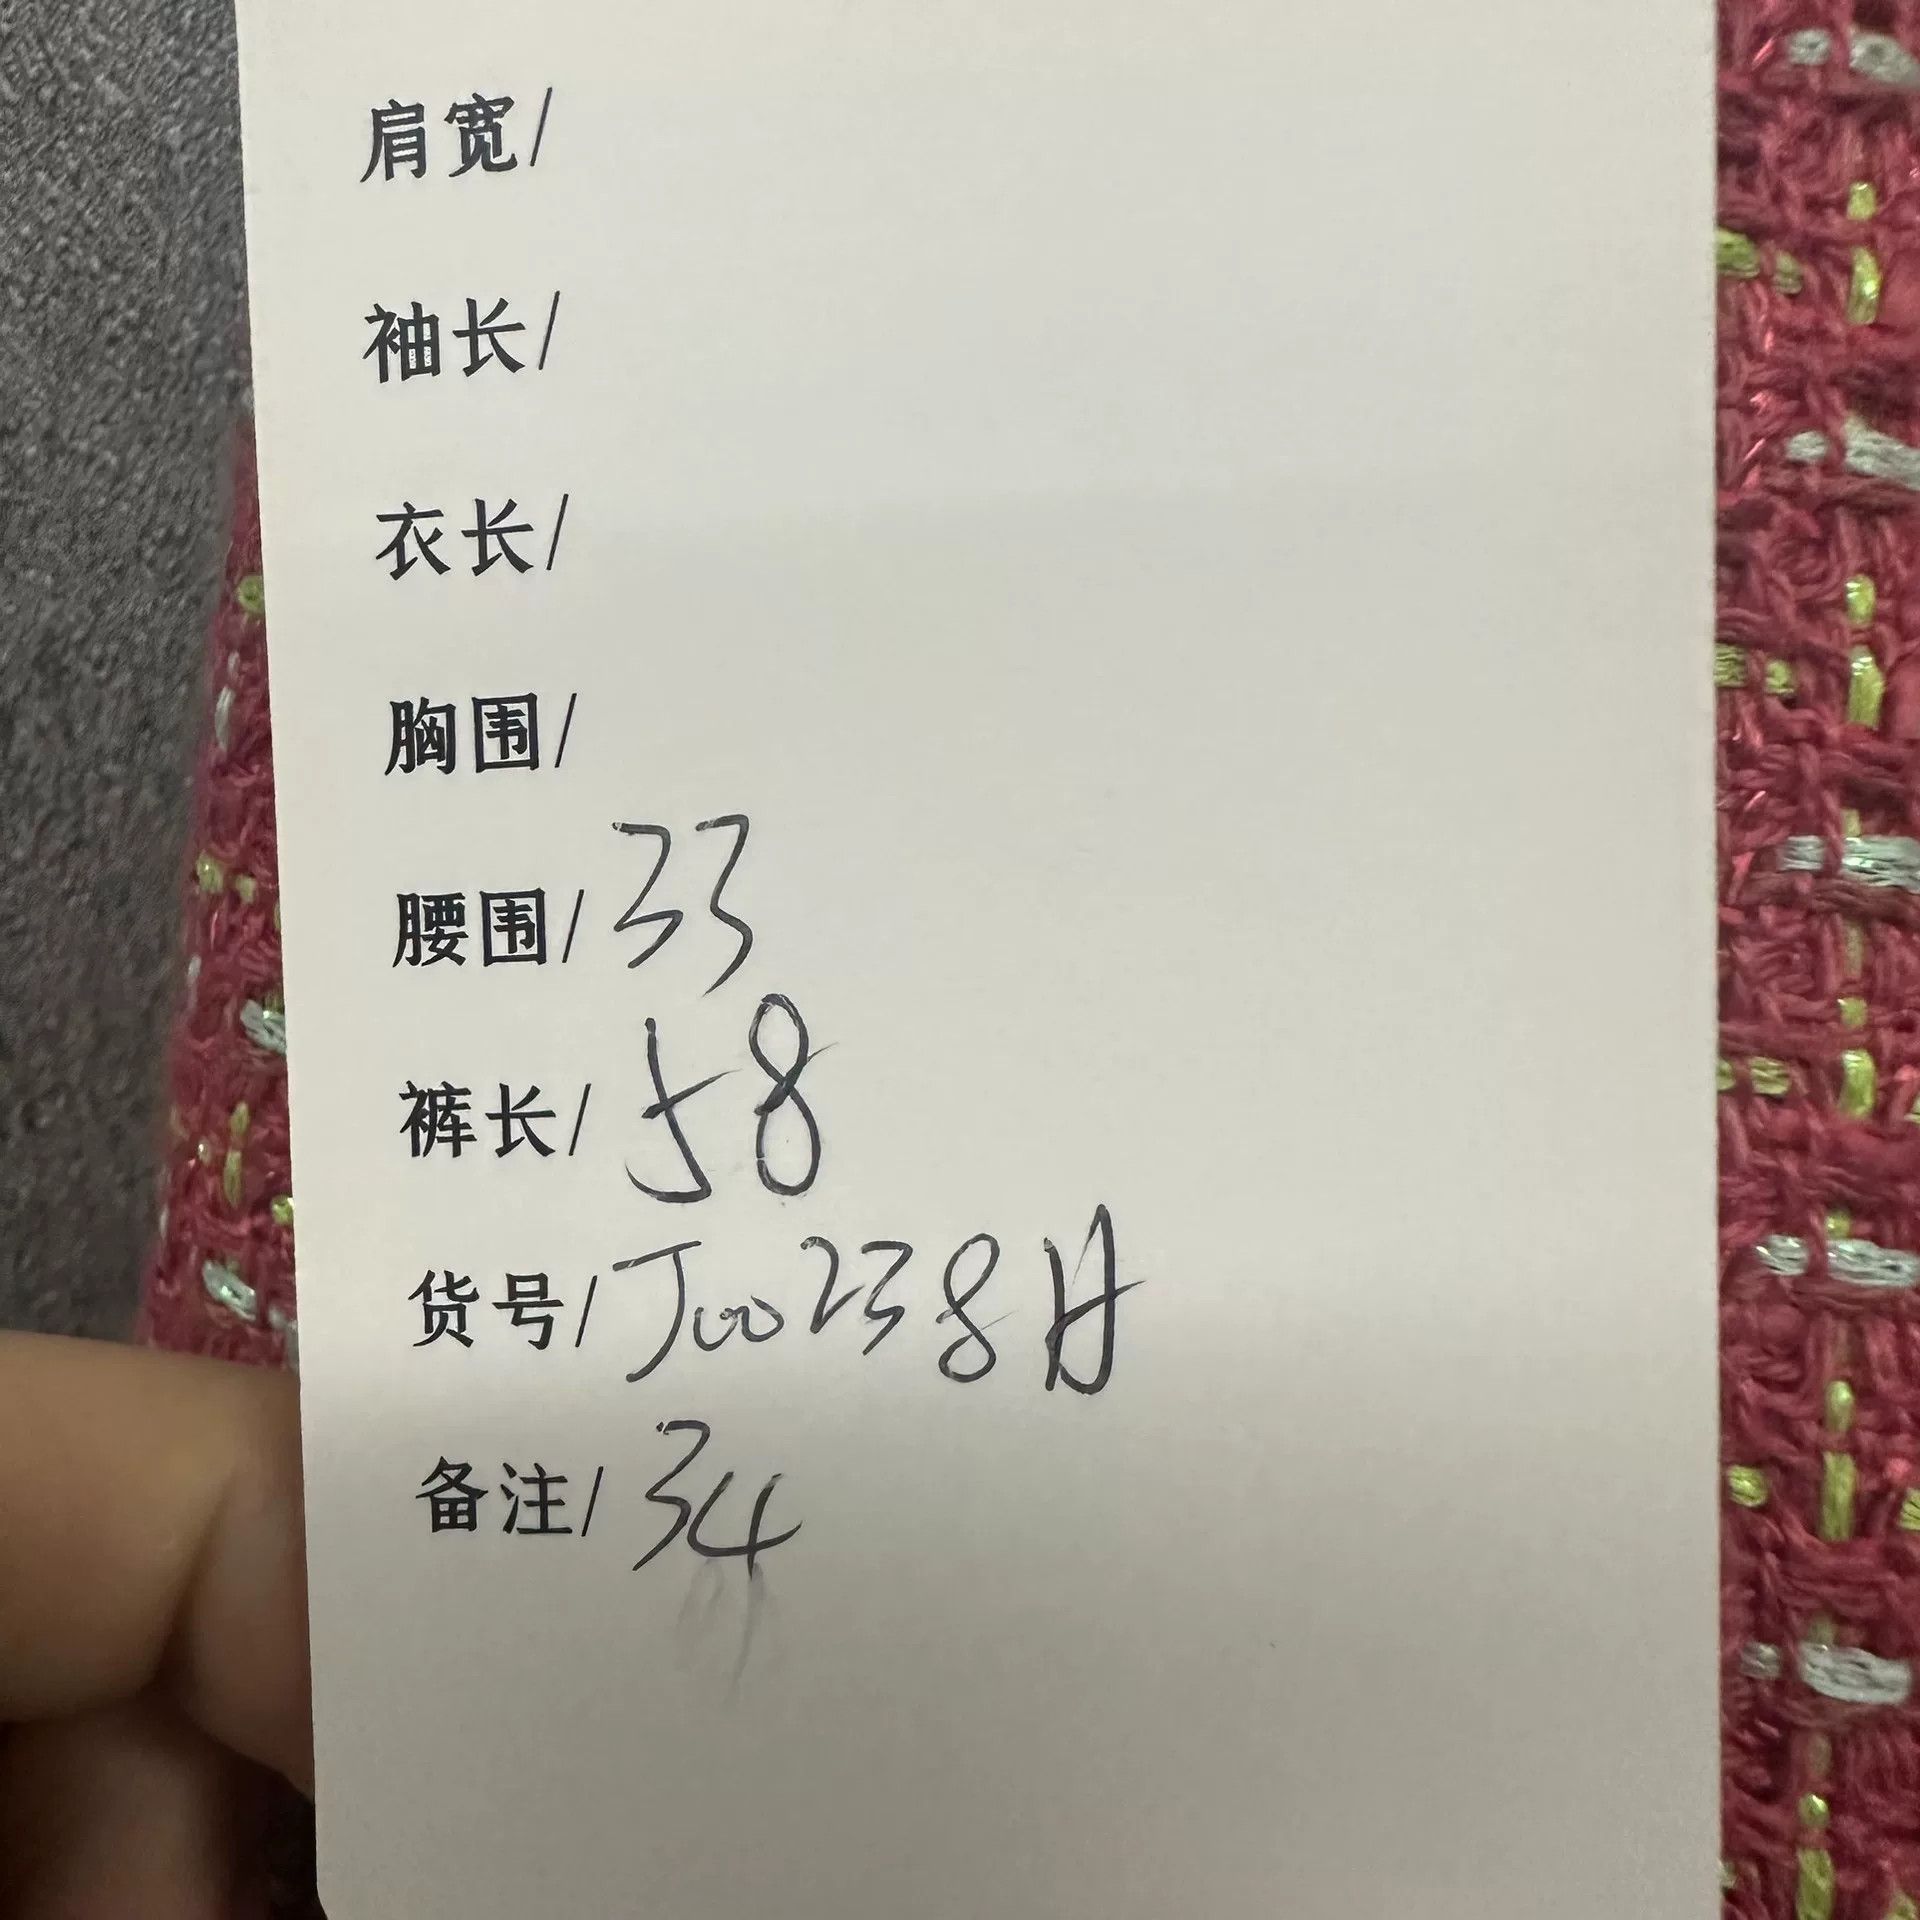 肩宽/
袖长/
衣长/
胸围/
腰围/ 33
裤长/ 58
货号/ J00238A
备注/ 34